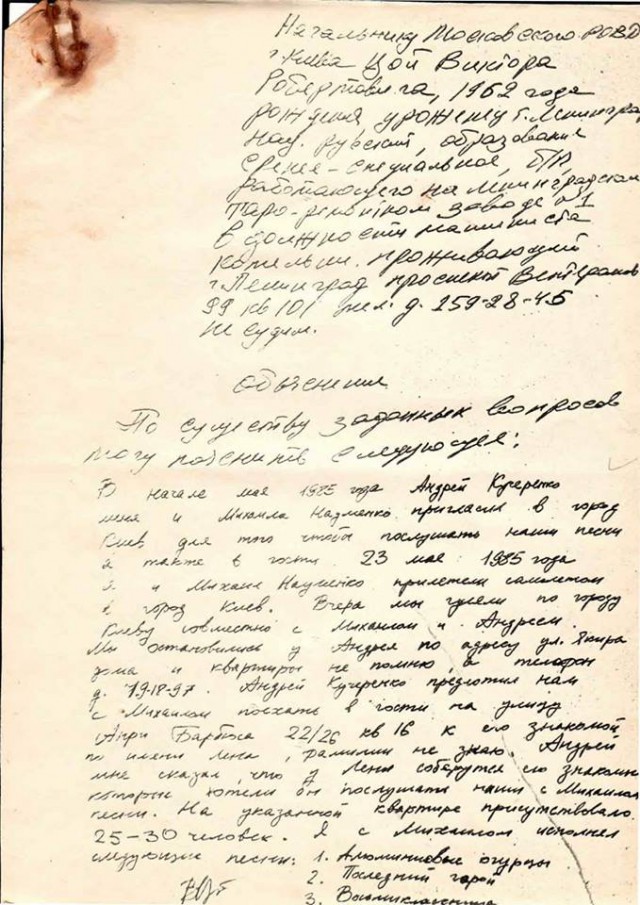 Начальнику Московского РОВД
г. Киева Цой Виктора
Робертовича, 1962 года
рождения урожену г. Ленинград
нац. русский, образование
средне-специальное, б/п,
работающего на Ленинградском
заводе №1
в должности машиниста
котельни. проживающий
г. Ленинград проспект Ветеранов
99 кв 101 тел. д. 259-28-45
не судим.
Объяснение
По существу заданных вопросов
могу пояснить следующее:
В начале мая 1985 года Андрей Кучеренко
меня и Михаила Науменко пригласил в город
Киев для того чтобы послушать наши песни
а также в гости. 23 мая 1985 года
я и Михаил Науменко прилетели самолетом
в город Киев. Вчера мы гуляли по городу
Киеву совместно с Михаилом и Андреем.
Мы остановились у Андрея по адресу ул. Якира
дома и квартиры не помню, а телефон
д. 19-18-97. Андрей Кучеренко предложил нам
с Михаилом поехать в гости на улицу
Анри Барбюса 22/26 кв 16 к его знакомой
по имени Лена, фамилии не знаю. Андрей
мне сказал, что у Лени соберутся его знакомые
которые хотели бы послушать наши с Михаилом
песни. На указанной квартире присутствовало
25-30 человек. Я с Михаилом исполнял
следующие песни: 1. Алюминиевые огурцы
2. Последний герой
3. Восьмиклассница